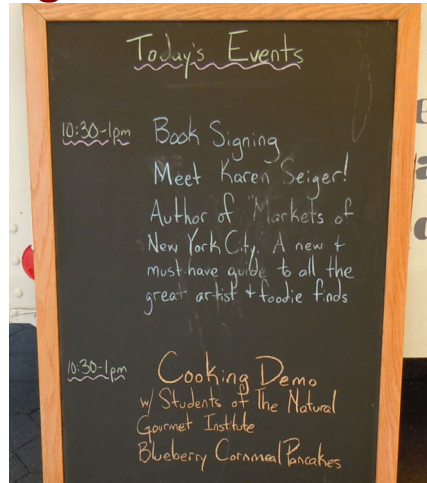 Today's Events
10:30-1pm Book Signing
Meet Karen Seiger!
Author of "Markets of
New York City, A new +
must-have guide to all the
great artist + foodie finds
10:30-1pm Cooking Demo
w/ Students of The Natural
Gourmet Institute
Blueberry Cornmeal Pancakes